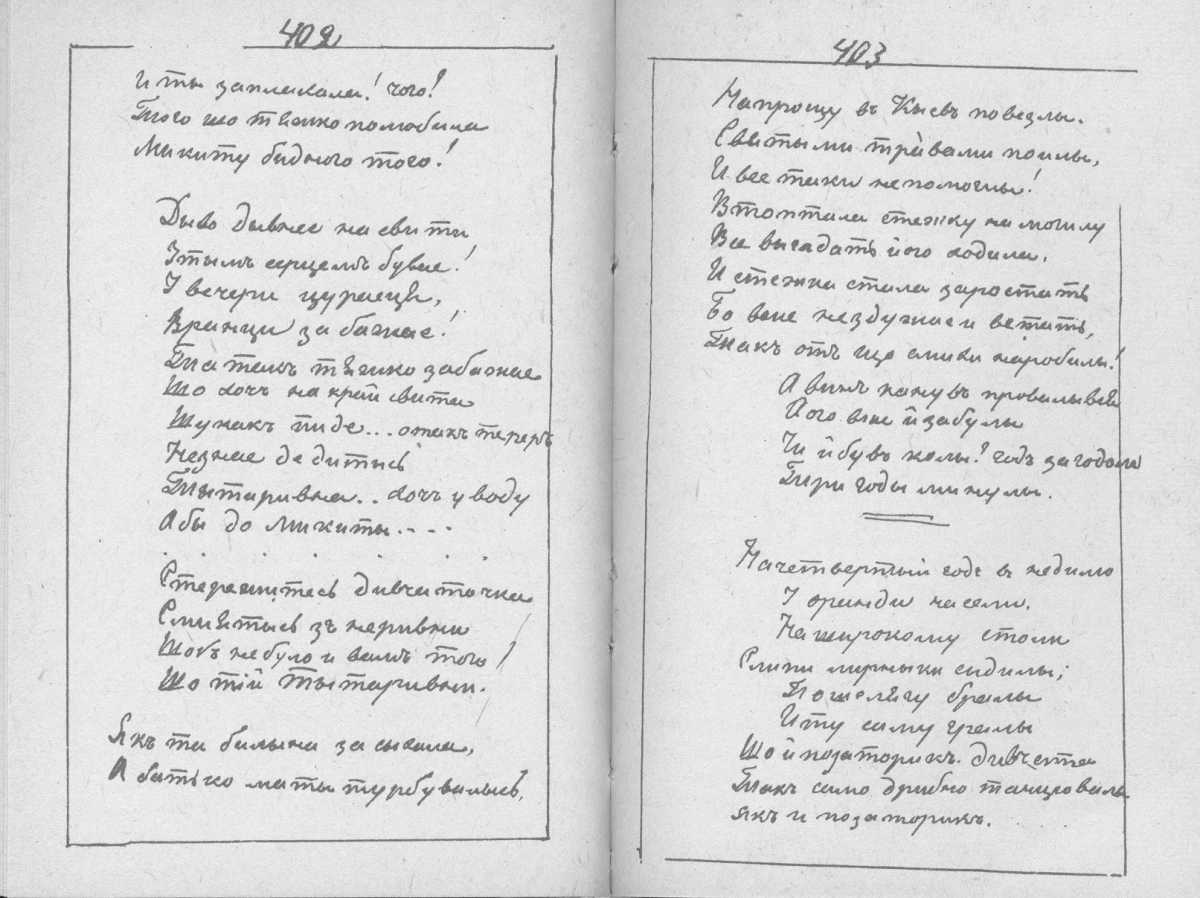 402
И ты заплакала! чого!
Того що тяжко полюбила
Микиту бидного того!
Дыво дывнее на свити
Зтымъ серцемъ бувае!
У вечери цураецця,
Вранци забажае!
Та такъ тяжко забажае
Що хочъ на край свита
Шукакъ пиде... отакъ теперь
Незнае де дитысь
Тытаривна.. хочъ у воду
Абы до Микиты....
Стережитесь дивчаточка
Смиятысь зъ неривни
Щобъ не було и вамъ того!
Що тій Тытаривни.
Якъ та былына засыхала,
А батько маты турбувалысь,
403
На прощу въ Кыевъ повезлы.
Святыми травами поилы,
И все таки не помоглы!
Втоптала стежку на могилу
Все выгадать його ходила.
И стежка стала заростать
Бо вже нездужае и встать,
Такъ отъ що смихи наробилы!
А винъ канувъ провалывся
Його вже й забулы
Чи й бувъ колы? годъ за годомъ
Три годы минулы.
На четвертый годъ въ недилю
У оранди на сели.
На широкому столи
Слипи лирныки сидилы;
По шелягу бралы
И ту саму гралы
Що й позаторикъ. дивчата
Такъ само дрибно танцювалы
Якъ и позаторикъ.